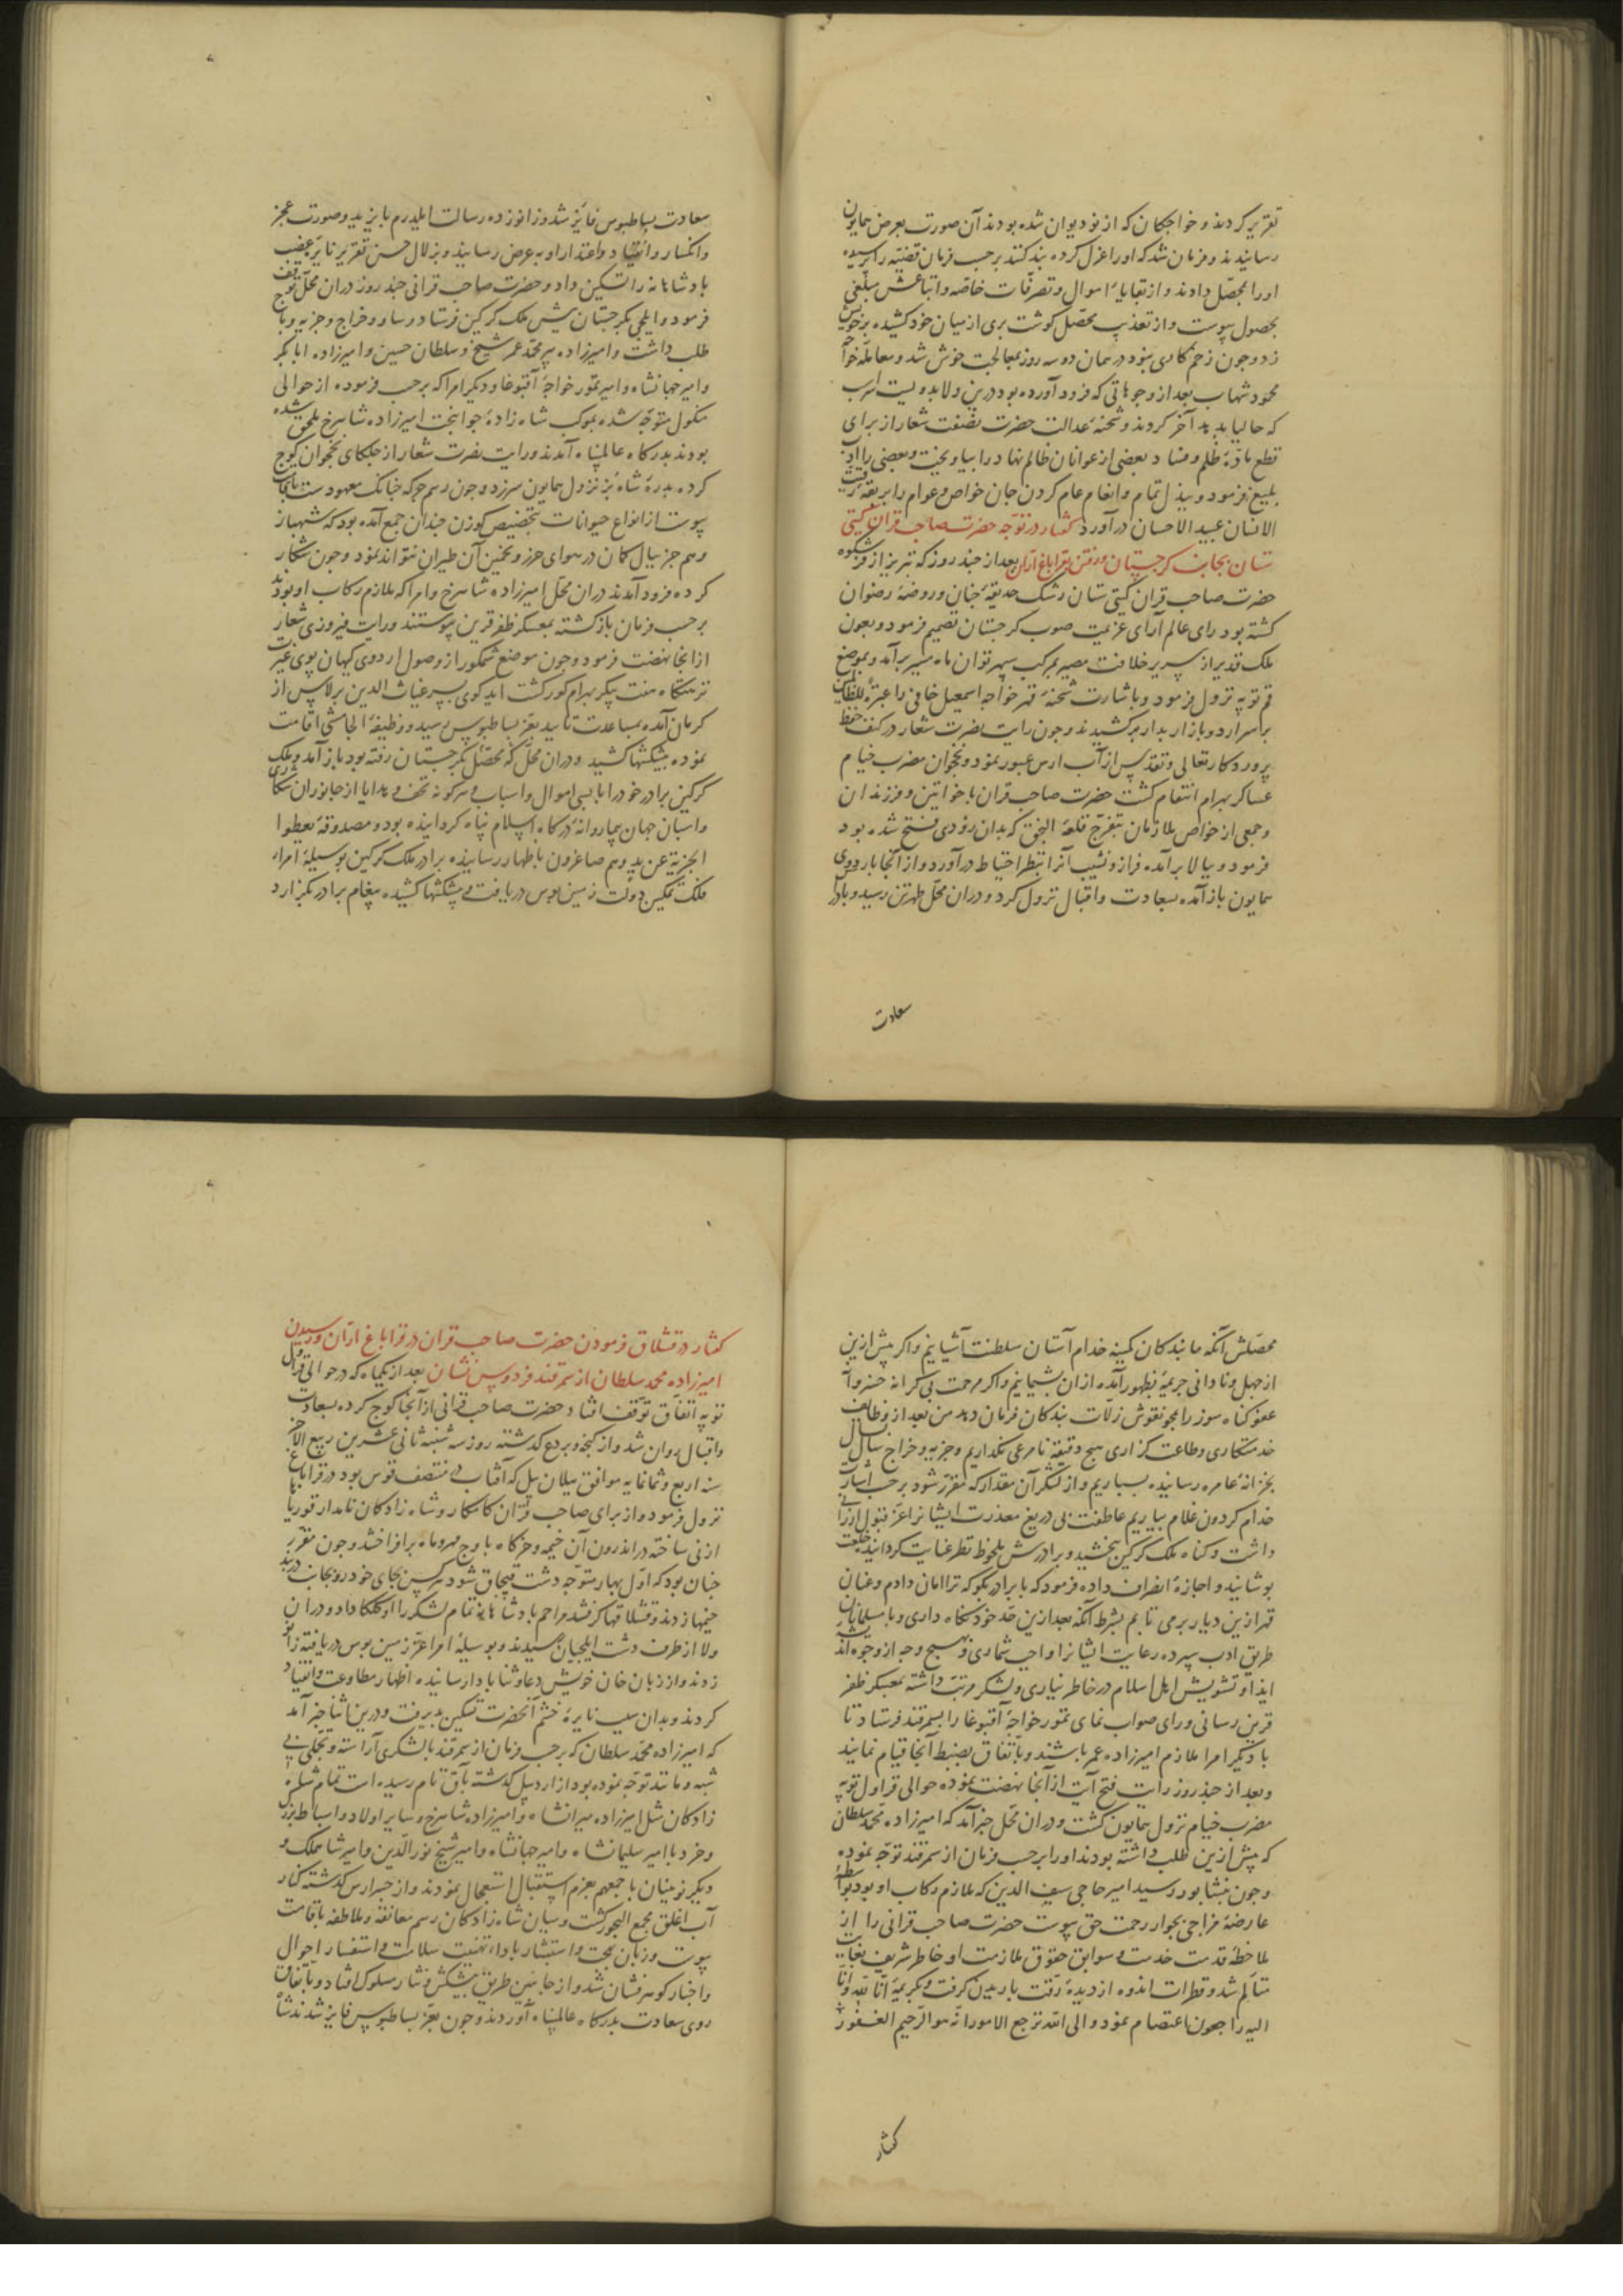 تقریر کردند و خواجکان که از نو دیوان شده بودند آن صورت بعرض همایون
رسانیدند و فرمان شد که او را عزل کرده بند کنند برحسب فرمان قضیه را پرسیده
او را محصل دادند و از بقایاء اموال و تصرفات خاصه و اتباعش مبلغی
بحصول پیوست و از تعذیب محصل کوشت بری از میان خود کشیده بر خویش
زد و چون زخم کاری نبود در همان دو سه روز بمعالجت خوش شد و معامله خواجه
محمود شهاب بعد از وجوهاتی که فرود آورده بود درین ولا بدویست اسب
که حالیا بدهد آخر کردند و شحنه عدالت حضرت نصفت شعار از برای
قطع ماده ظلم و فساد بعضی از عوانان ظالم نهاد را بیاویخت و بعضی را ادب
بلیغ فرمود و ببذل تمام و انعام عام کردن جان خواص و عوام را بربقه رقیت
الانسان عبید الاحسان درآورد کفتار در توجه حضرت صاحب قران کیتی
ستان بجانب کرجستان و رفتن بقراباغ اران بعد از چند روز که تبریز از فر شکوه
حضرت صاحب قران کیتی ستان رشک حدیقه جنان و روضه رضوان
کشته بود رای عالم آرای عزیمت صوب کرجستان تصمیم فرمود و بعون
ملک قدیر از سریر خلافت مصیر بمرکب سپهر توان ماه مسیر برآمد و بموضع
قم توپه نزول فرمود و باشارت شحنه قهر خواجه اسمعیل خافی را عبرة للظالمین
بر سر اردو بازار بدار برکشیدند و چون رایت نصرت شعار در کنف حفظ
پروردکار تعالی و تقدس از آب ارس عبور نمود و نخجوان مضرب خیام
عساکر بهرام انتقام کشت حضرت صاحب قران با خواتین و فرزندان
و جمعی از خواص ملازمان بتفرج قلعه النجق که بدان زودی فتح شده بود
فرمود و ببالا برآمده فراز و نشیب آنرا بنظر احتیاط درآورد و از آنجا باردوی
همایون بازآمده بسعادت و اقبال نزول کرد و دران محل طهرتن رسید و بادراک
سعادت
سعادت بساطبوس فایز شد و زانو زده رسالت ایلدرم بایزید و صورت عجز
و انکسار و انقیاد و اعتذار او بعرض رسانید و بزلال حسن تقریر نایره غضب
پادشاهانه را تسکین داد و حضرت صاحب قرانی چند روز دران محل توقف
فرمود و ایلچی بکرجستان پیش ملک کرکین فرستاد و ساو و خراج و جزیه و باج
طلب داشت و امیرزاده پیر محمد عمر شیخ و سلطان حسین و امیرزاده ابابکر
و امیر جهانشاه و امیر تمور خواجه آقبوغا و دیکر امرا که برحسب فرموده از حوالی
منکول متوجه شده بموکب شاه زاده جوانبخت امیرزاده شاهرخ ملحق شده
بودند بدرکاه عالمپناه آمدند و رایت نصرت شعار از جلکای نخجوان کوچ
کرده بدره شاه بز نزول همایون
پیوست از انواع حیوانات بتخصیص کوزن چندان جمع آمده بود که شهباز
وهم جز ببال کمان در هوای حزر و تخمین آن طیران نتواند نمود و چون شکار
کرده فرود آمدند دران محل امیرزاده شاهرخ و امرا که ملازم رکاب او بودند
برحسب فرمان بازکشته بمعسکر ظفر قرین پیوستند و رایت فیروزی شعار
از آنجا نهضت فرمود و چون موضع شمکور از وصول اردوی کیهان پوی غیرت
نزهتکاه هفت پیکر بهرام کور کشت ایدکوی پسر غیاث الدین برلاس از
کرمان آمده بمساعدت تایید بعز بساطبوس رسید و وظیفه الجامشی اقامت
نموده پیشکشها کشید و دران محل که محصل بکرجستان رفته بود باز آمد و ملک
کرکین برادر خود را با بسی اموال و اسباب و هرکونه تحف و هدایا از جانوران شکاری
و اسبان جهان پیما روانه درکاه اسلام پناه کردانیده بود و مصدوقه یعطوا
الجزیة عن ید و هم صاغرون باظهار رسانیده برادر ملک کرکین بوسیله امراء
ملک تمکین دولت زمین بوس دریافت و پیشکشها کشیده پیغام برادر بکزارد
محصلش آنکه ما بندکان کمینه خدام آستان سلطنت آشیانیم و اکر پیش ازین
از جهل و نادانی جریمه بظهور آمده ازان پشیمانیم و اکر مرحمت بی کرانه خسروانه
عفو کناه سوز را بمحو نقوش زلات بندکان فرمان دهد من بعد از وظایف
خدمتکاری و طاعت کزاری هیچ دقیقه نامرعی نکذاریم و جزیه و خراج سال بسال
بخزانه عامره رسانیده بسپاریم و از لشکر آن مقدار که مقرر شود برحسب اشارت
خدام کردون غلام بیاریم عاطفت بی دریغ معذرت ایشانرا عز قبول ارزانی
داشت و کناه ملک کرکین ببخشید و برادرش ملحوظ نظر عنایت کردانید خلعت
پوشانید و اجازه انصراف داده فرمود که با برادر بکو که ترا امان دادم و عنان
قهر ازین دیار برمی تابم بشرط آنکه بعد ازین حد خود نکاه داری و با مسلمانان
طریق ادب سپرده رعایت ایشانرا واجب شماری و بهیچ وجه از وجوه اندیشه
ایذا و تشویش اهل اسلام در خاطر نیاری و لشکر مرتب داشته بمعسکر ظفر
قرین رسانی و رای صواب نمای تمور خواجه آقبوغا را بسمرقند فرستاد تا
با دیکر امرا ملازم امیرزاده عمر باشند و باتفاق بضبط آنجا قیام نمایند
و بعد از چند روز رایت فتح آیت از آنجا نهضت نموده حوالی قراول توپه
مضرب خیام نزول همایون کشت و دران محل خبر آمد که امیرزاده محمد سلطان
که پیش ازین طلب داشته بودند او را برحسب فرمان از سمرقند توجه نموده
و چون بنشابور رسید امیر حاجی سیف الدین که ملازم رکاب او بود بواسطه
عارضه مزاجی بجوار رحمت حق پیوست حضرت صاحب قرانی را از
ملاحظه قدمت خدمت و سوابق حقوق ملازمت او خاطر شریف بغایت
متالم شد و قطرات اندوه از دیده رقت باریدن کرفت و بکریمه انا لله و انا
الیه راجعون اعتصام نمود و الی الله ترجع الامور انه هو الرحیم الغفور
کفتار
کفتار در قشلاق فرمودن حضرت صاحب قران در قراباغ اران و رسیدن
امیرزاده محمد سلطان از سمرقند فردوس نشان بعد از یکماه که در حوالی قراول
توپه اتفاق توقف افتاد حضرت صاحب قرانی از آنجا کوچ کرده بسعادت
و اقبال روان شد و از کنجه و بردع کذشته روز سه شنبه ثانی عشرین ربیع الاخر
سنه اربع و ثمانمایه موافق ییلان ییل که آفتاب در منتصف قوس بود در قراباغ
نزول فرمود و از برای صاحب قران کامکار و شاه زادکان نامدار قوریاها
از نی ساخته در اندرون آن خیمه و خرکاه باوج مهر و ماه برافراختند و چون مقرر
چنان بود که اول بهار متوجه دشت قبچاق شود هرکس بجای خود رو بجانب دربند
خیمها زدند و قشلاقها کرفتند مراحم پادشاهانه تمام لشکر را اوکلکا داد و دران
ولا از طرف دشت ایلچیان رسیدند و بوسیله امرا عز زمین بوس دریافته زانو
زدند و از زبان خان خویش دعا و ثنا بادا رسانیده اظهار مطاوعت و انقیاد
کردند و بدان سبب نایره خشم آنحضرت تسکین پذیرفت و درین اثنا خبر آمد
که امیرزاده محمد سلطان که برحسب فرمان از سمرقند با لشکری آراسته و تجملی بی
شبه و مانند توجه نموده بود از اردبیل کذشته بآق تام رسیده است تمام شاه
زادکان مثل امیرزاده میرانشاه و امیرزاده شاهرخ و سایر اولاد و اسباط بزرک
و خرد با امیر سلیمانشاه و امیر جهانشاه و امیر شیخ نورالدین و امیر شاهملک و
دیکر نوینان باجمعهم بعزم استقبال استعجال نمودند و از جسر ارس کذشته کنار
آب اغلق مجمع البحور کشت و میان شاه زادکان رسم معانقه و ملاطفه باقامت
پیوست و زبان بهجت و استبشار باداء تهنیت سلامت و استفسار احوال
و اخبار کوهرفشان شد و از جانبین طریق پیشکش و نثار مسلوک افتاد و باتفاق
روی سعادت بدرکاه عالمپناه آوردند و چون بعز بساطبوس فایز شدند شاه